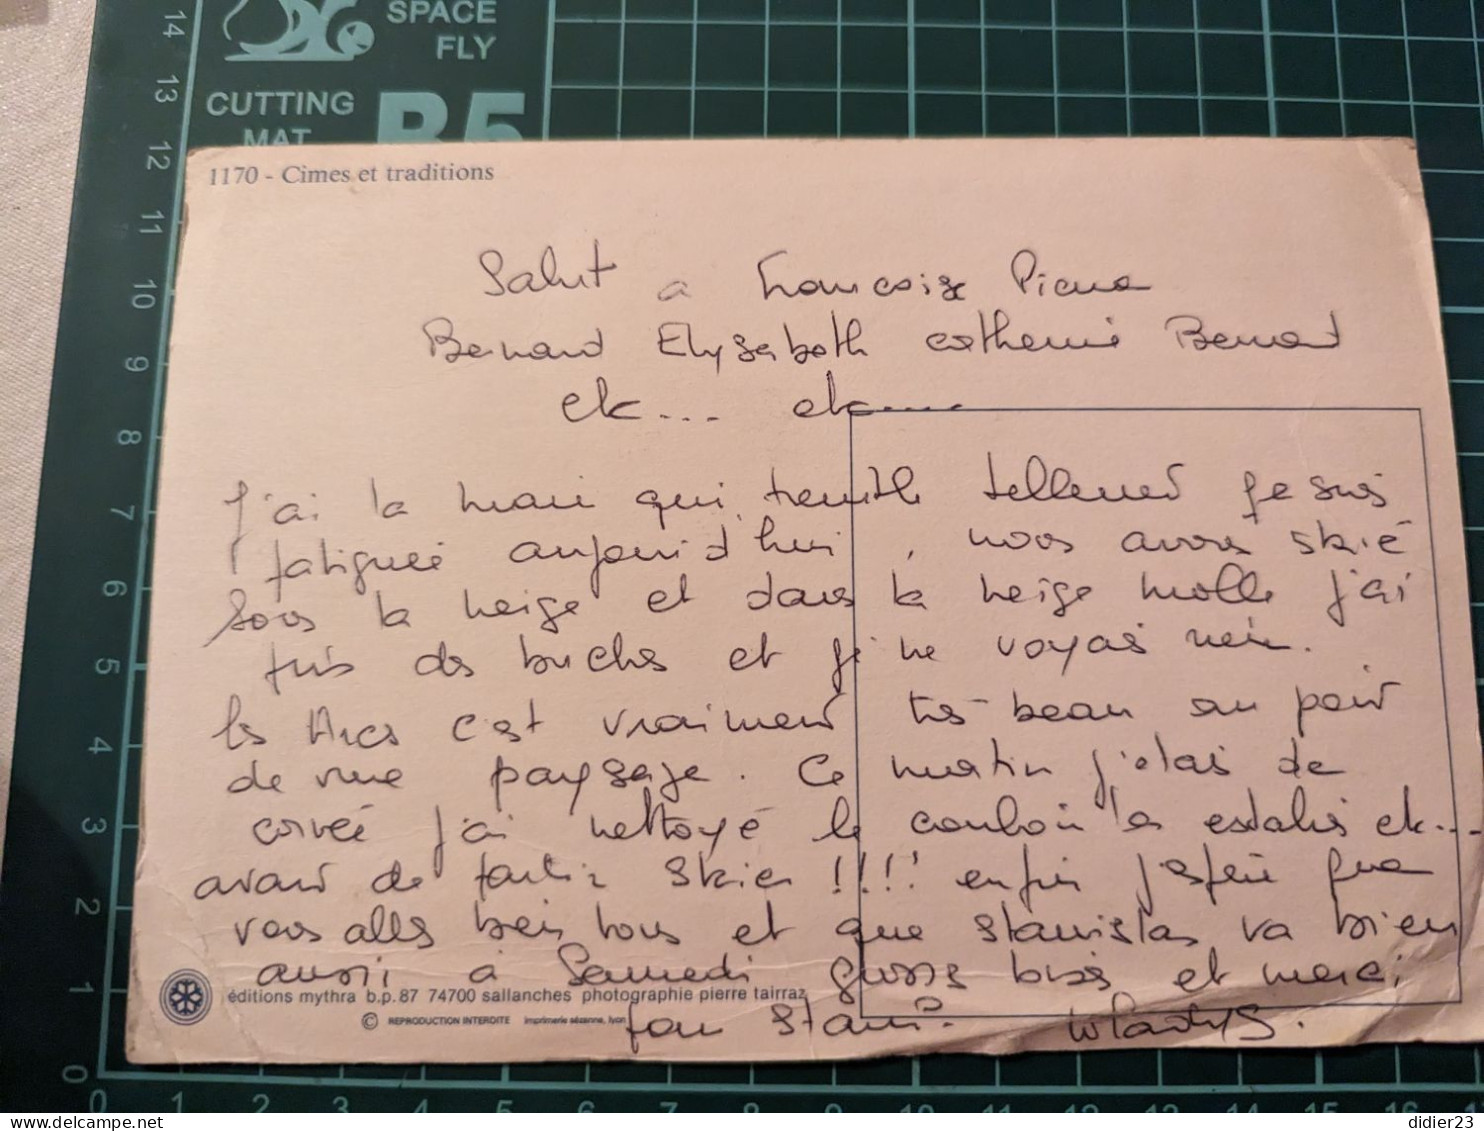 14
SPACE
FLY
13
CUTTING
MAT
B5
12
1170 - Cimes et traditions
11
Salut a Francoise
10
Bernard Elysabeth catherine Bernard
9
etc... etc....
8
J'ai la main qui tremble tellement je suis
7
fatiguée aujourd'hui, nous avons skié
6
sous la neige et dans la neige molle j'ai
pris des buches et je ne voyais rien.
5
les Arcs c'est vraiment très beau au point
4
de vue paysage. Ce matin j'étais de
3
corvée j'ai nettoyé le couloir les escaliers etc...
avant de partir skier !!!! enfin j'espère que
2
vous allez bien tous et que stanislas va bien
1
aussi à Samedi grosses bises et merci
éditions mythra b.p. 87 74700 sallanches photographie pierre tairraz
© REPRODUCTION INTERDITE imprimerie sézanne, lyon
pour Stani. Wladys.
0
0 1 2 3 4 5 6 7 8 9 10 11 12 13 14 15 16
didier23